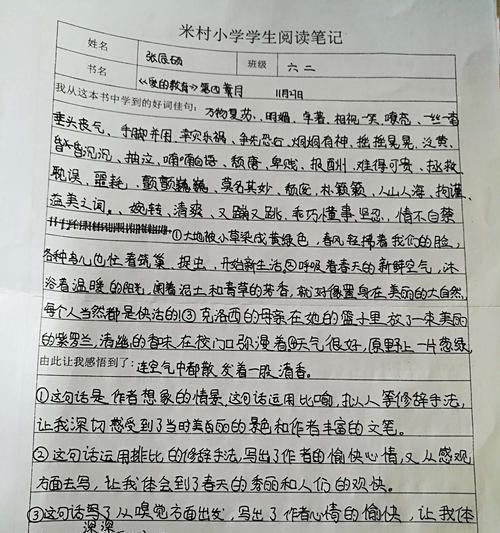 米村小学学生阅读笔记
姓名 张辰硕 班级 六二
书名 《爱的教育》第四章月 11月27日
我从这本书中学到的好词佳句：万物复苏、明媚、牵着、相视一笑、嘹亮、一丝一毫
垂头丧气、手脚并用、幸灾乐祸、争先恐后、炯炯有神、摇摇晃晃、泛黄、
昏昏沉沉、抽泣、喃喃自语、颓废、卑贱、报酬、难得可贵、拯救
耽误、噩耗、颤颤巍巍、莫名其妙、杨、朴、人山人海、拘谨、
溢美之词。、婉转、清爽、又蹦又跳、乖巧懂事、坚忍、情不自禁
①大地被小草染成黄绿色，春风轻拂着我们的脸，
各种鸟儿也忙着筑巢、捉虫，开始新生活②呼吸着春天的新鲜空气，沐
浴着温暖的阳光，闻着泥土和青草的芳香，就好像置身在美丽的大自然，
每个人当然都是快活的③克洛西的母亲在她的篮子里放了一束美丽
的紫罗兰，清幽的香味在校门口弥漫着④天气很好，原野上一片葱绿，
由此让我感悟到了：连空气中都散发着一股清香。
①这句话是作者想象的情景，这句话运用比喻，拟人等修辞手法，
让我深切感受到了当时美丽的景色和作者丰富的文笔。
②这句话运用排比的修辞手法，写出了作者的愉快心情，又从感观
方面去写，让我体会到了春天的秀丽和人们的欢快。
③这句话写了从嗅觉方面出发，写出了作者心情的愉快，让我体
深深